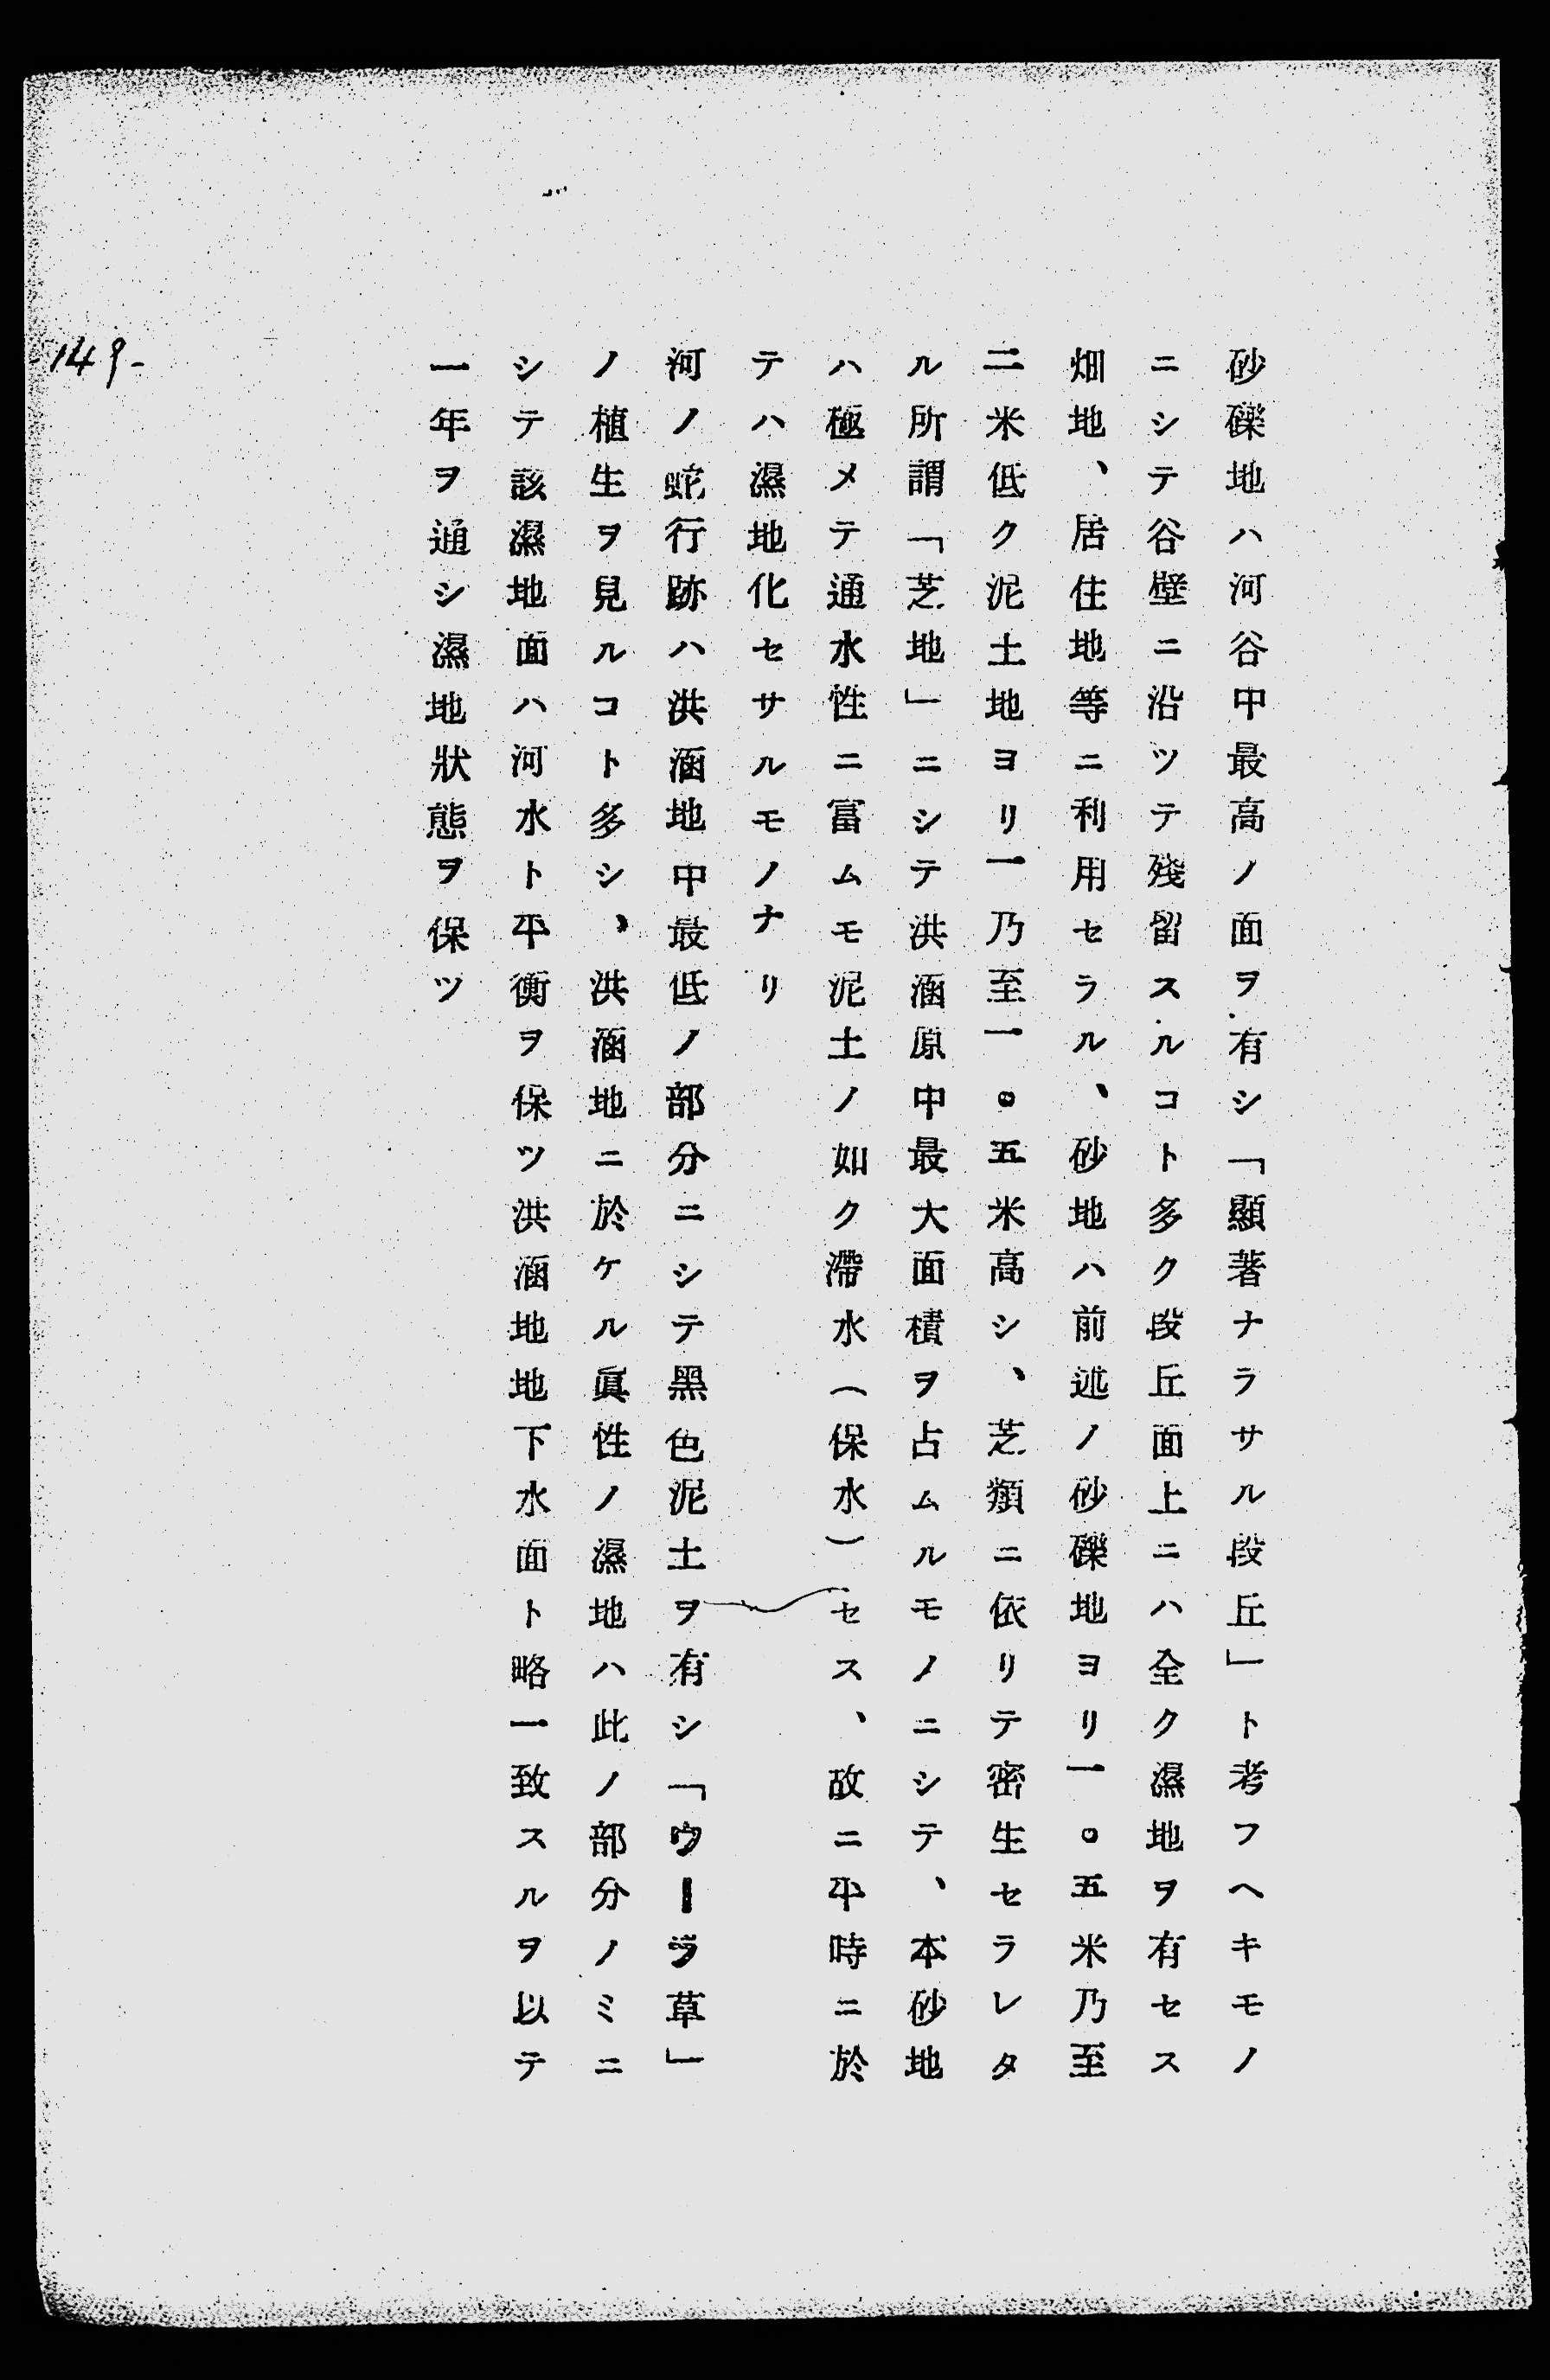 砂礫地ハ河谷中最高ノ面ヲ有シ「顯著ナラサル段丘」ト考フヘキモノ
ニシテ谷壁ニ沿ツテ殘留スルコト多ク段丘面上ニハ全ク濕地ヲ有セス
畑地、居住地等ニ利用セラル、砂地ハ前述ノ砂礫地ヨリ一。五米乃至
二米低ク泥土地ヨリ一乃至一。五米高シ、芝類ニ依リテ密生セラレタ
ル所謂「芝地」ニシテ洪涵原中最大面積ヲ占ムルモノニシテ、本砂地
ハ極メテ通水性ニ富ムモ泥土ノ如ク滯水(保水)セス、故ニ平時ニ於
テハ濕地化セサルモノナリ
河ノ蛇行跡ハ洪涵地中最低ノ部分ニシテ黑色泥土ヲ有シ「ウーラ草」
ノ植生ヲ見ルコト多シ、洪涵地ニ於ケル眞性ノ濕地ハ此ノ部分ノミニ
シテ該濕地面ハ河水ト平衡ヲ保ツ洪涵地地下水面ト略一致スルヲ以テ
一年ヲ通シ濕地狀態ヲ保ツ
-149-